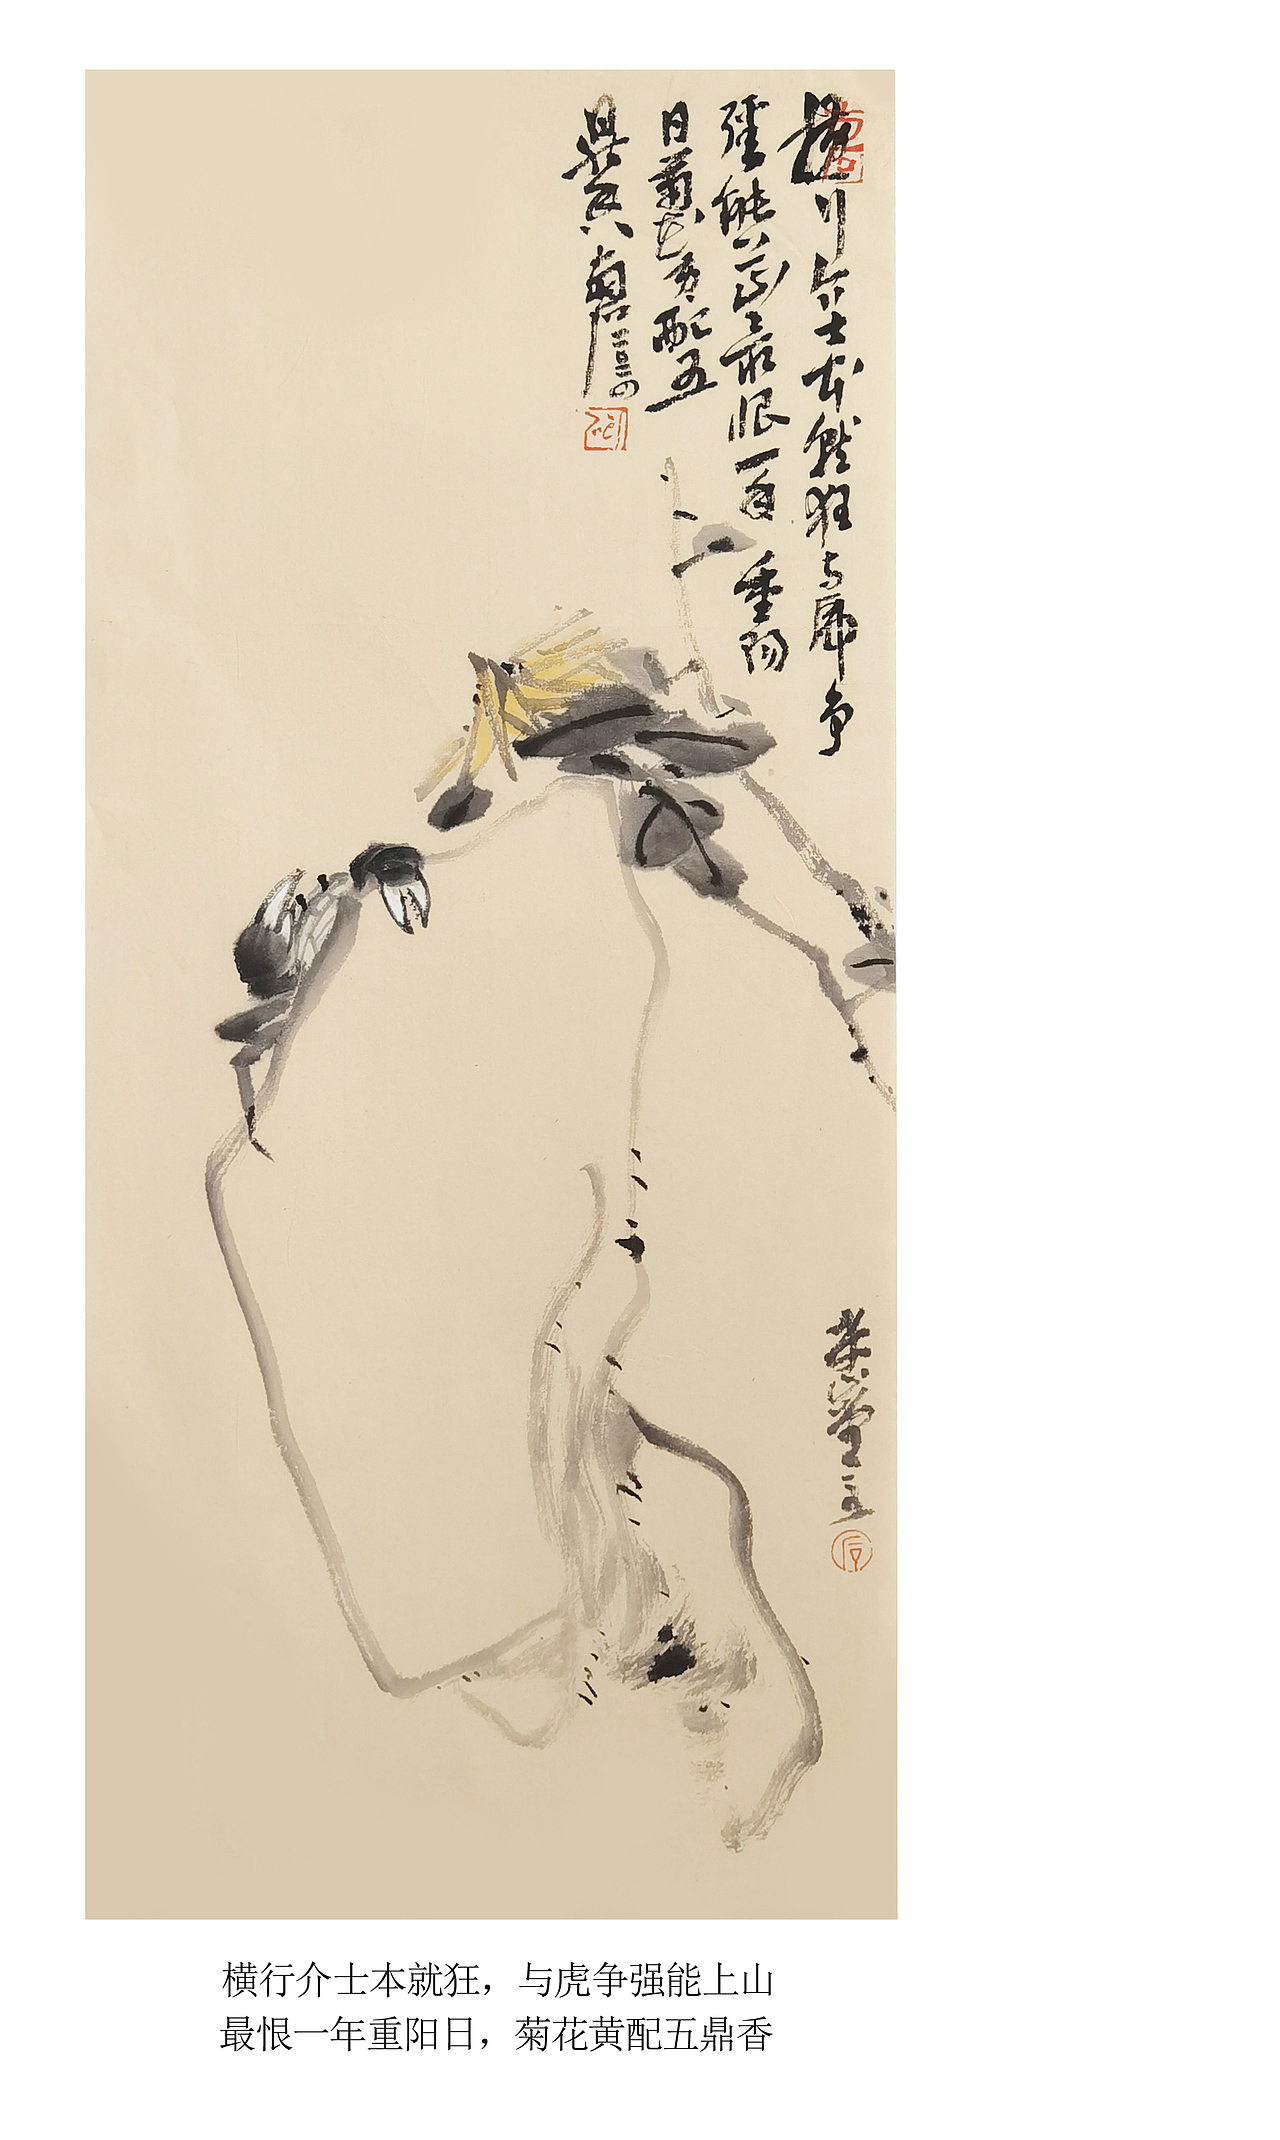 横行介士本就狂与虎争
强能最恨一年重阳
日菊花黄配五
鼎香
横行介士本就狂，与虎争强能上山
最恨一年重阳日，菊花黄配五鼎香